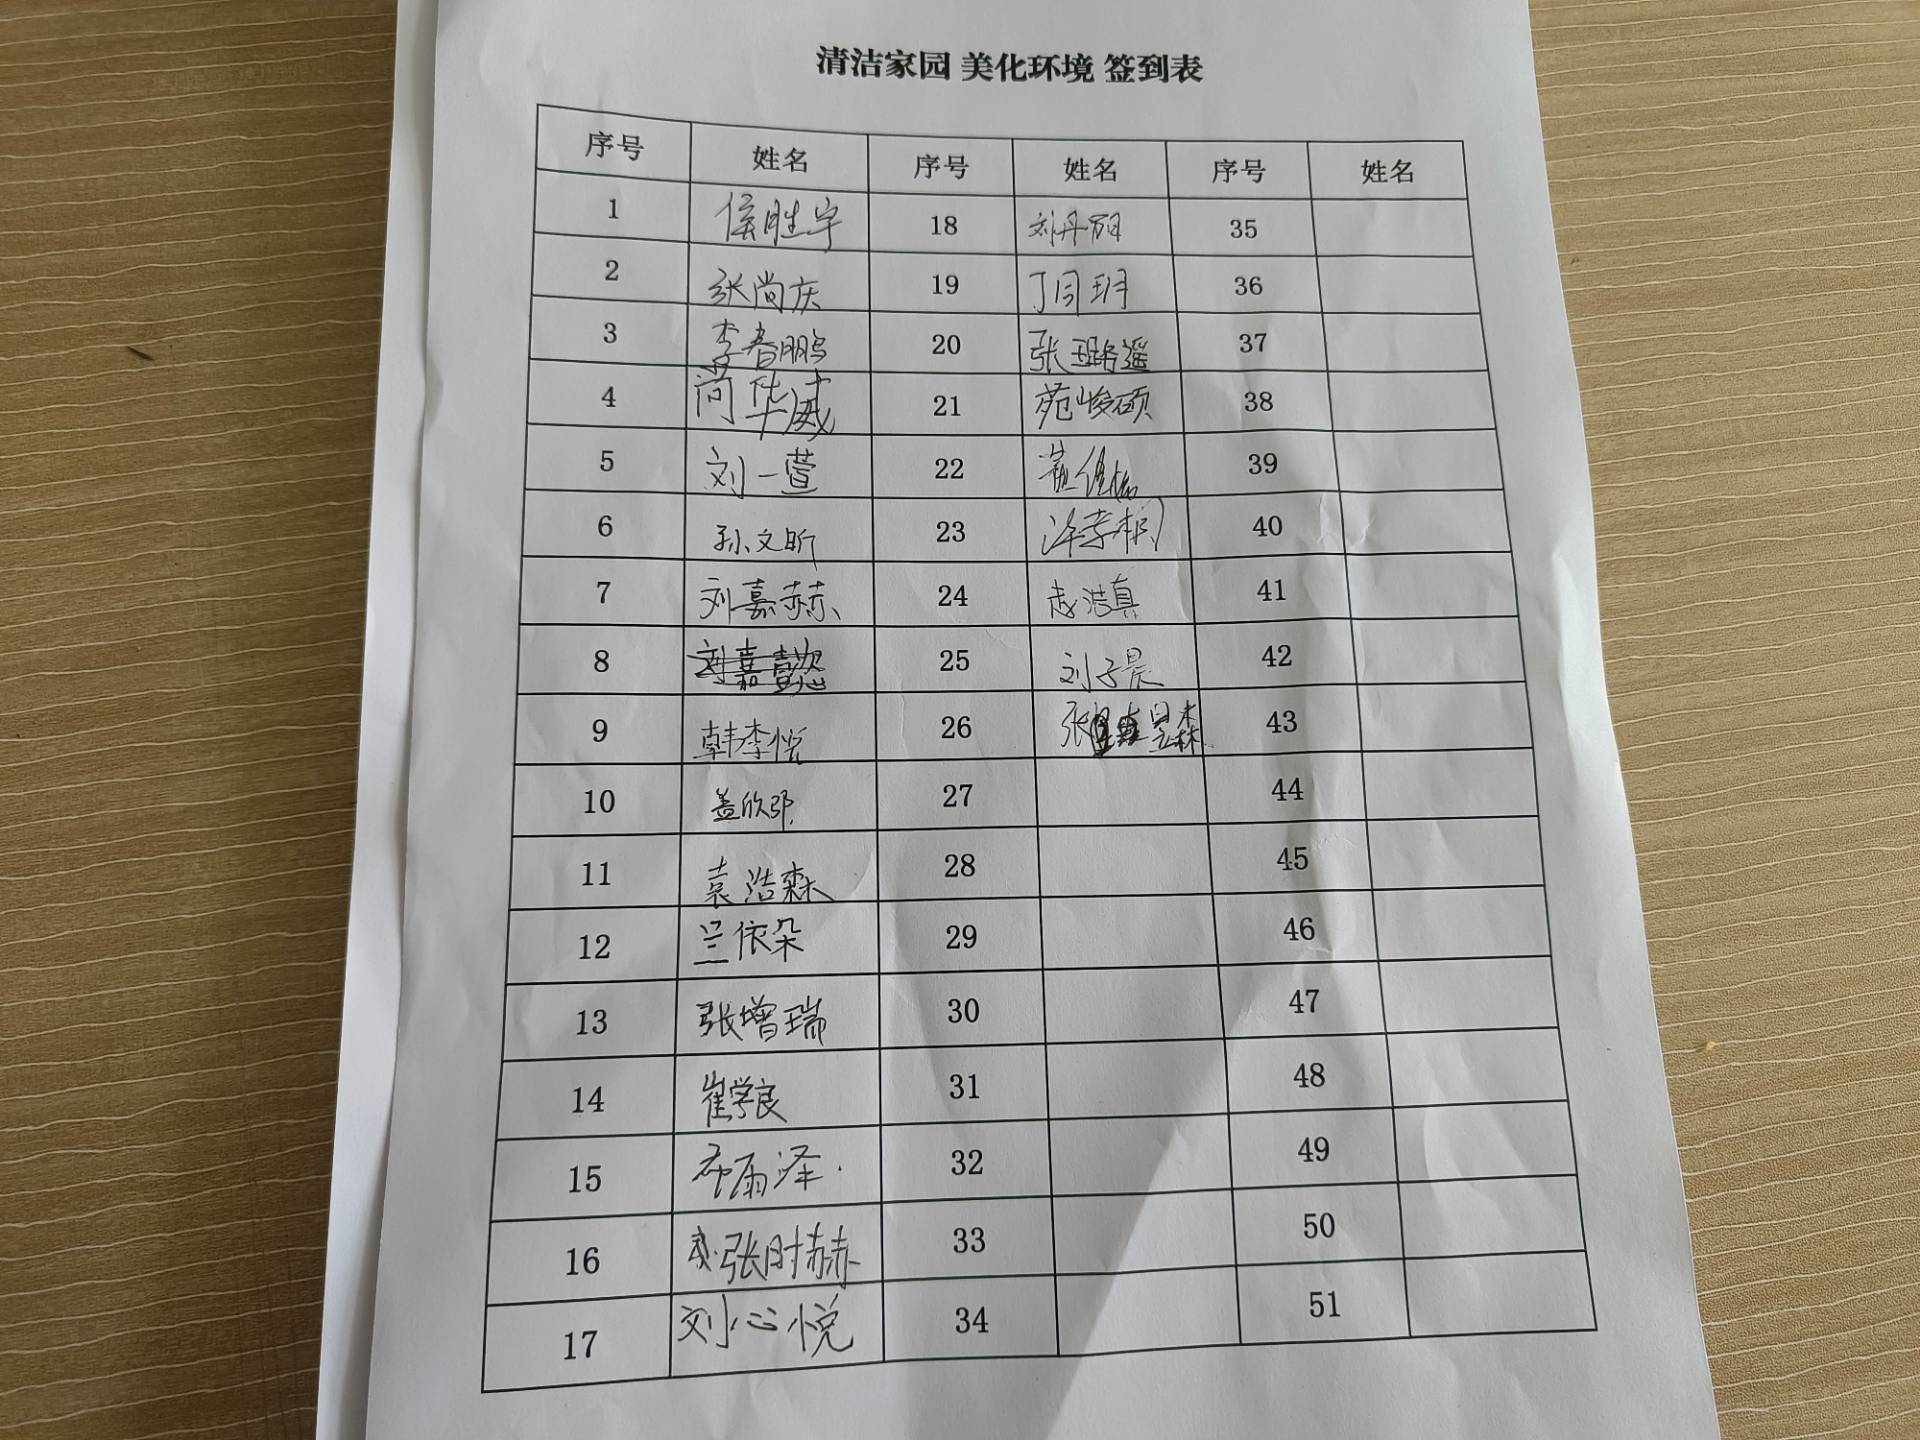 清洁家园 美化环境 签到表
序号 姓名 序号 姓名 序号 姓名
1 侯胜宇 18 刘丹丽 35
2 张尚庆 19 丁同玥 36
3 李春鹏 20 张璐遥 37
4 尚华威 21 苑峻硕 38
5 刘一萱 22 39
6 孙文昕 23 40
7 刘嘉赫 24 赵浩真 41
8 刘嘉懿 25 刘子晨 42
9 韩李悦 26 张昱森 43
10 盖欣邵 27 44
11 袁浩森 28 45
12 兰依朵 29 46
13 张增瑞 30 47
14 崔学良 31 48
15 布雨泽 32 49
16 张时赫 33 50
17 刘心悦 34 51